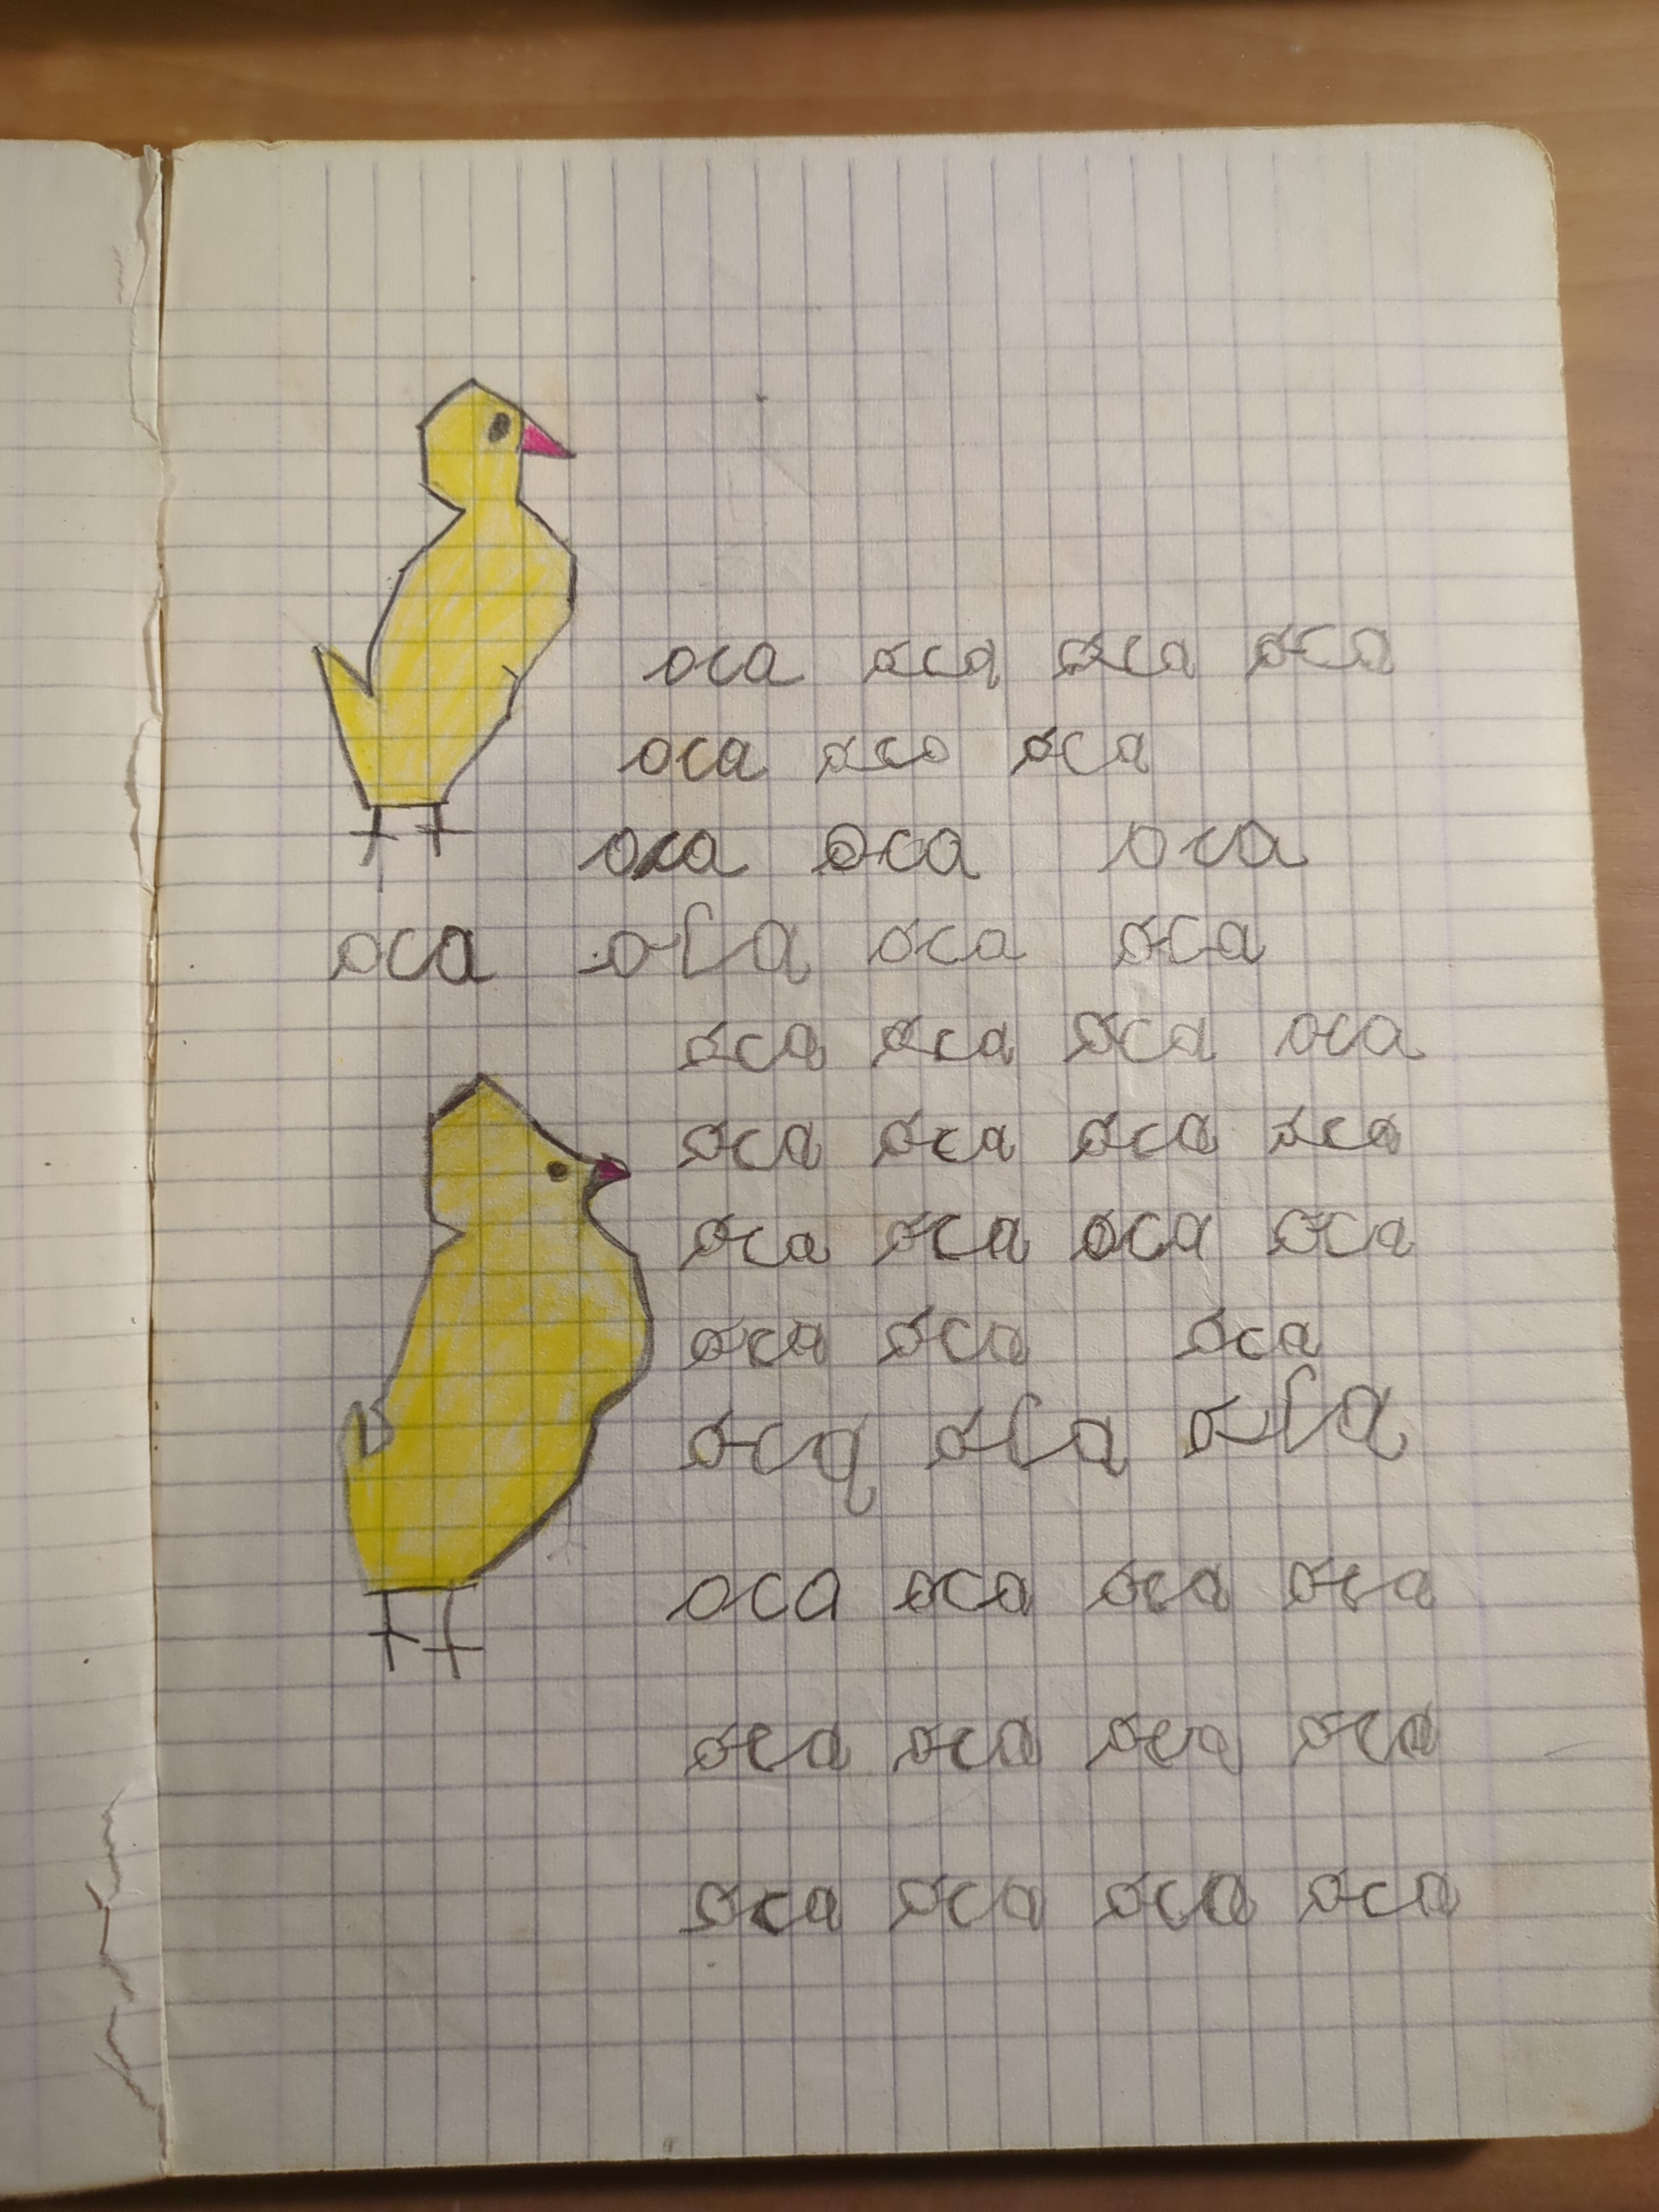 oca oca oca oca
oca oco oca
oca oca oca
oca ola oca oca
oca oca oca oca
oca oca oca oca
oca oca oca oca
oca oca oca
oca ola ola
oca oca oca oca
oca oca oca oca
oca oca oca oca